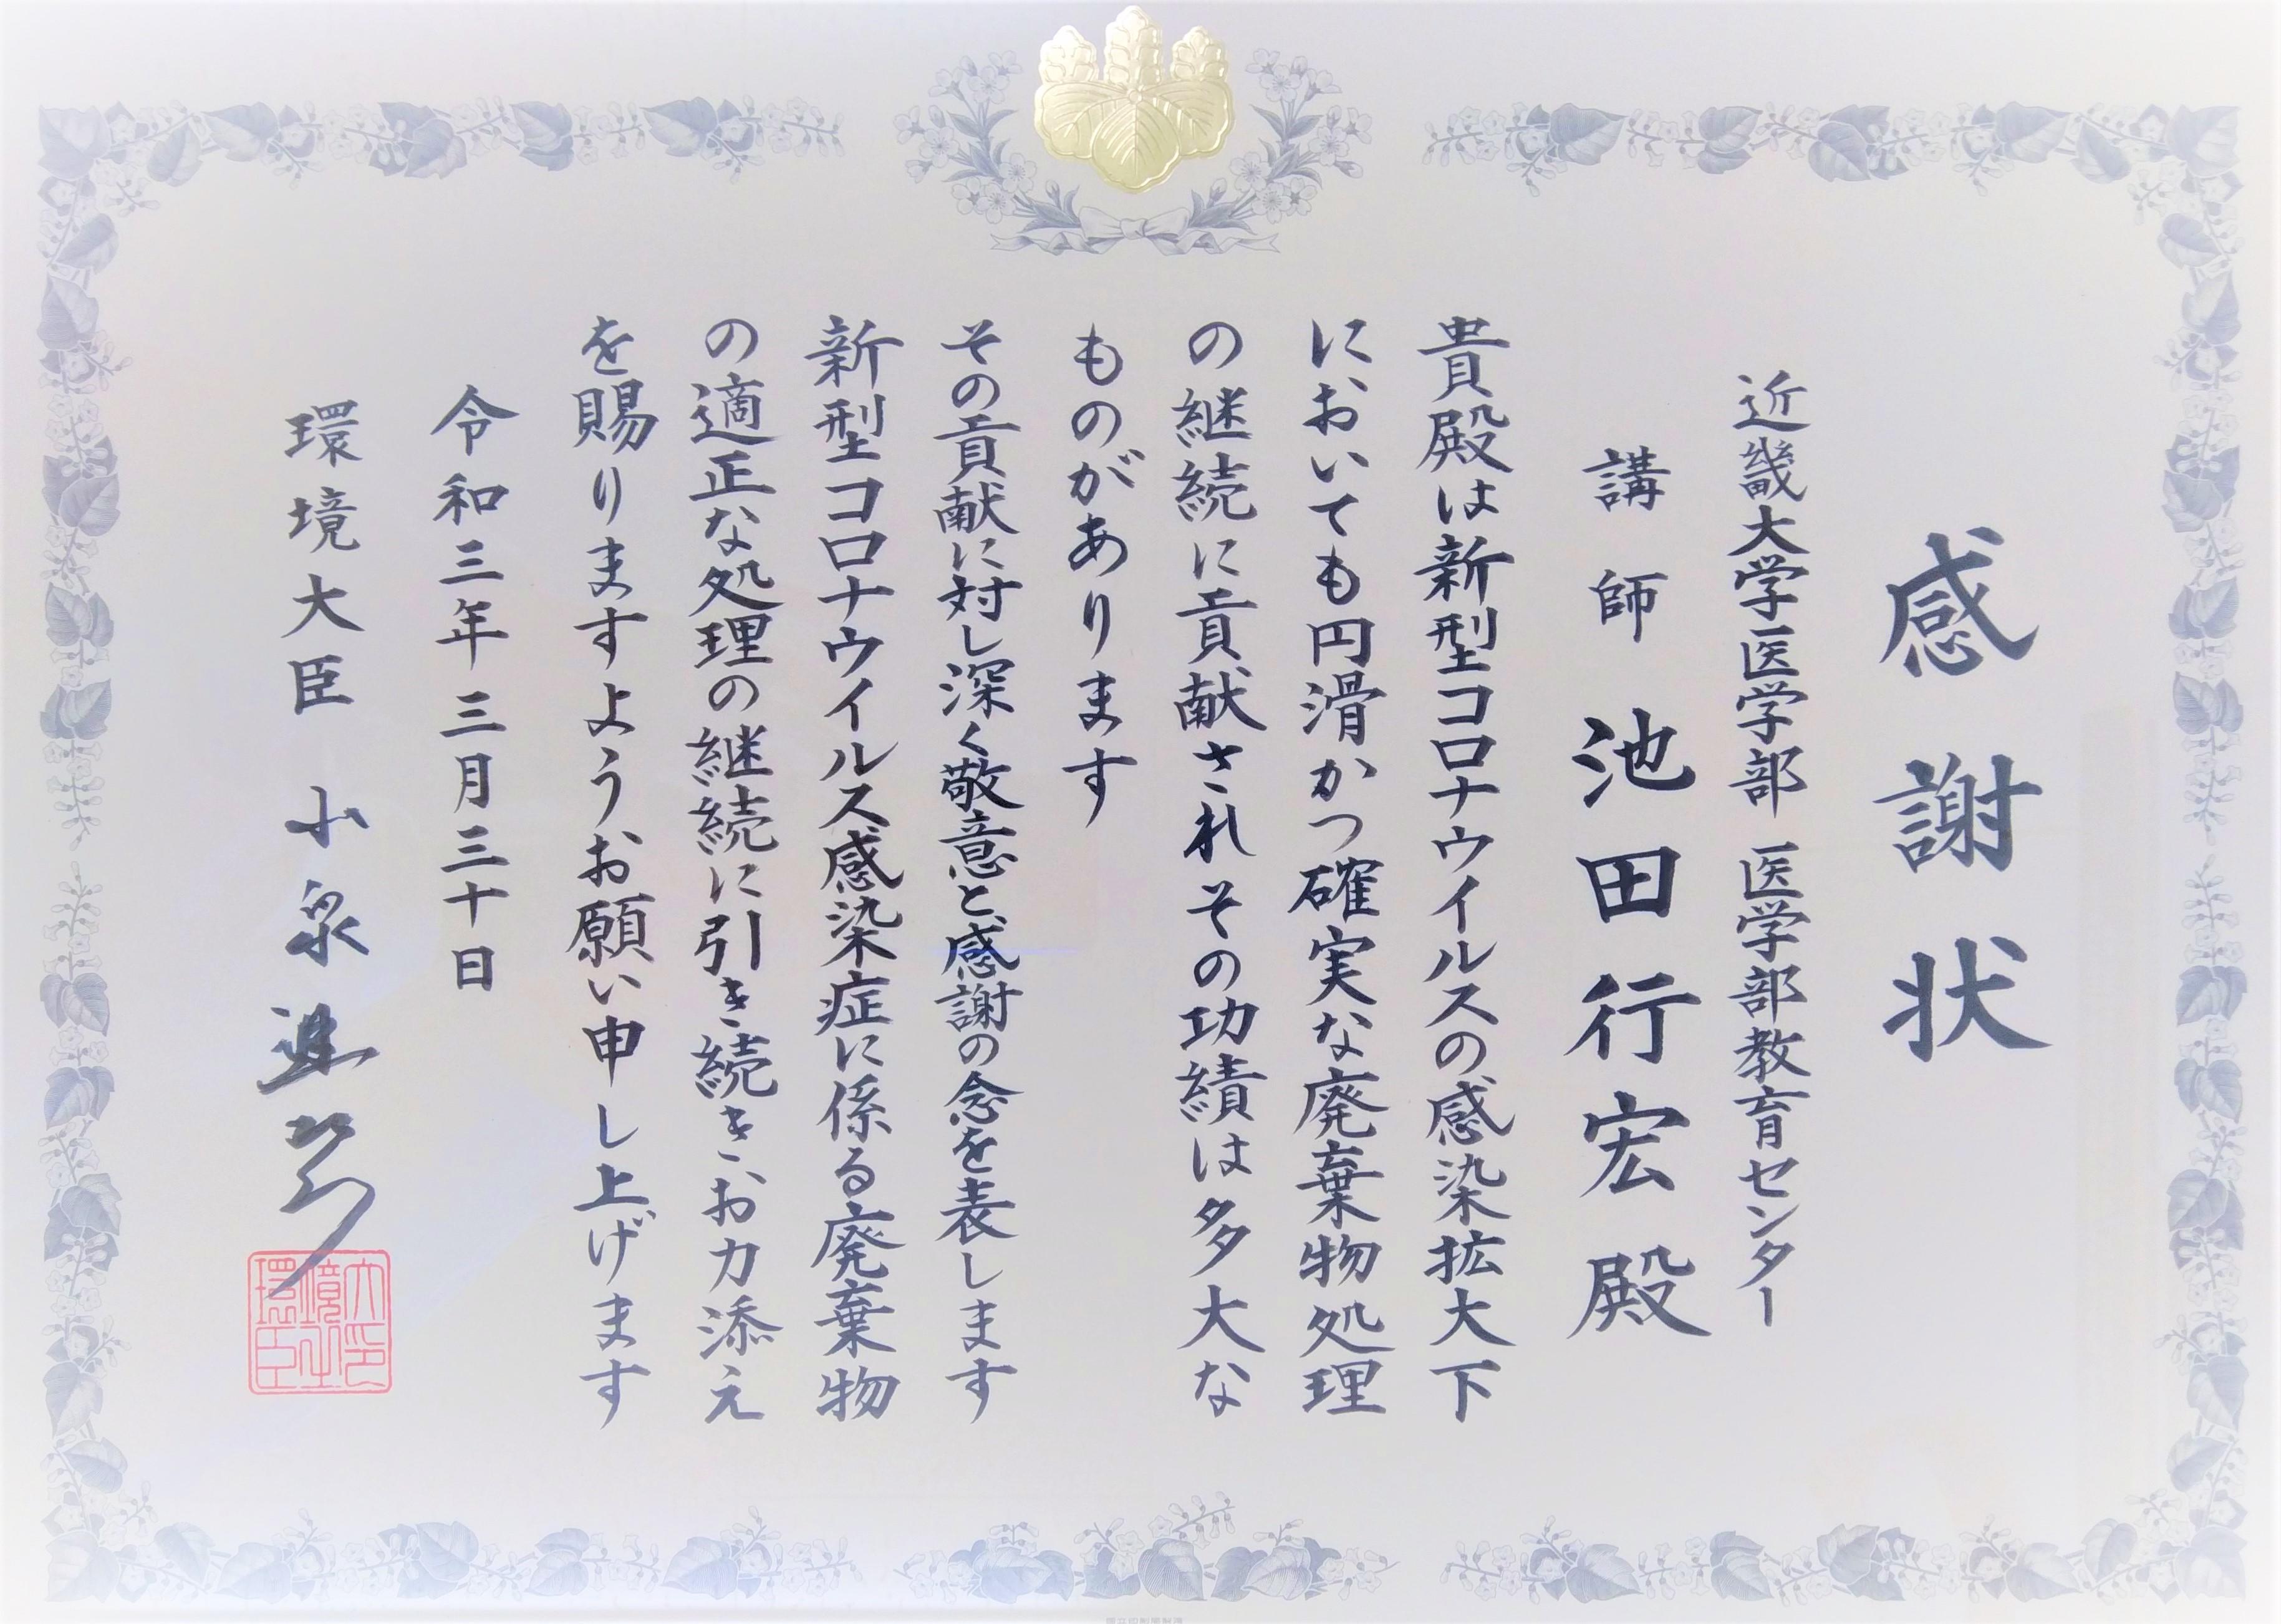 感謝状
近畿大学医学部 医学部教育センター
講師 池田行宏殿
貴殿は新型コロナウイルスの感染拡大下
においても円滑かつ確実な廃棄物処理
の継続に貢献されその功績は多大な
ものがあります
その貢献に対し深く敬意と感謝の念を表します
新型コロナウイルス感染症に係る廃棄物
の適正な処理の継続に引き続きお力添え
を賜りますようお願い申し上げます
令和三年三月三十日
環境大臣 小泉進次郎
環境大臣之印